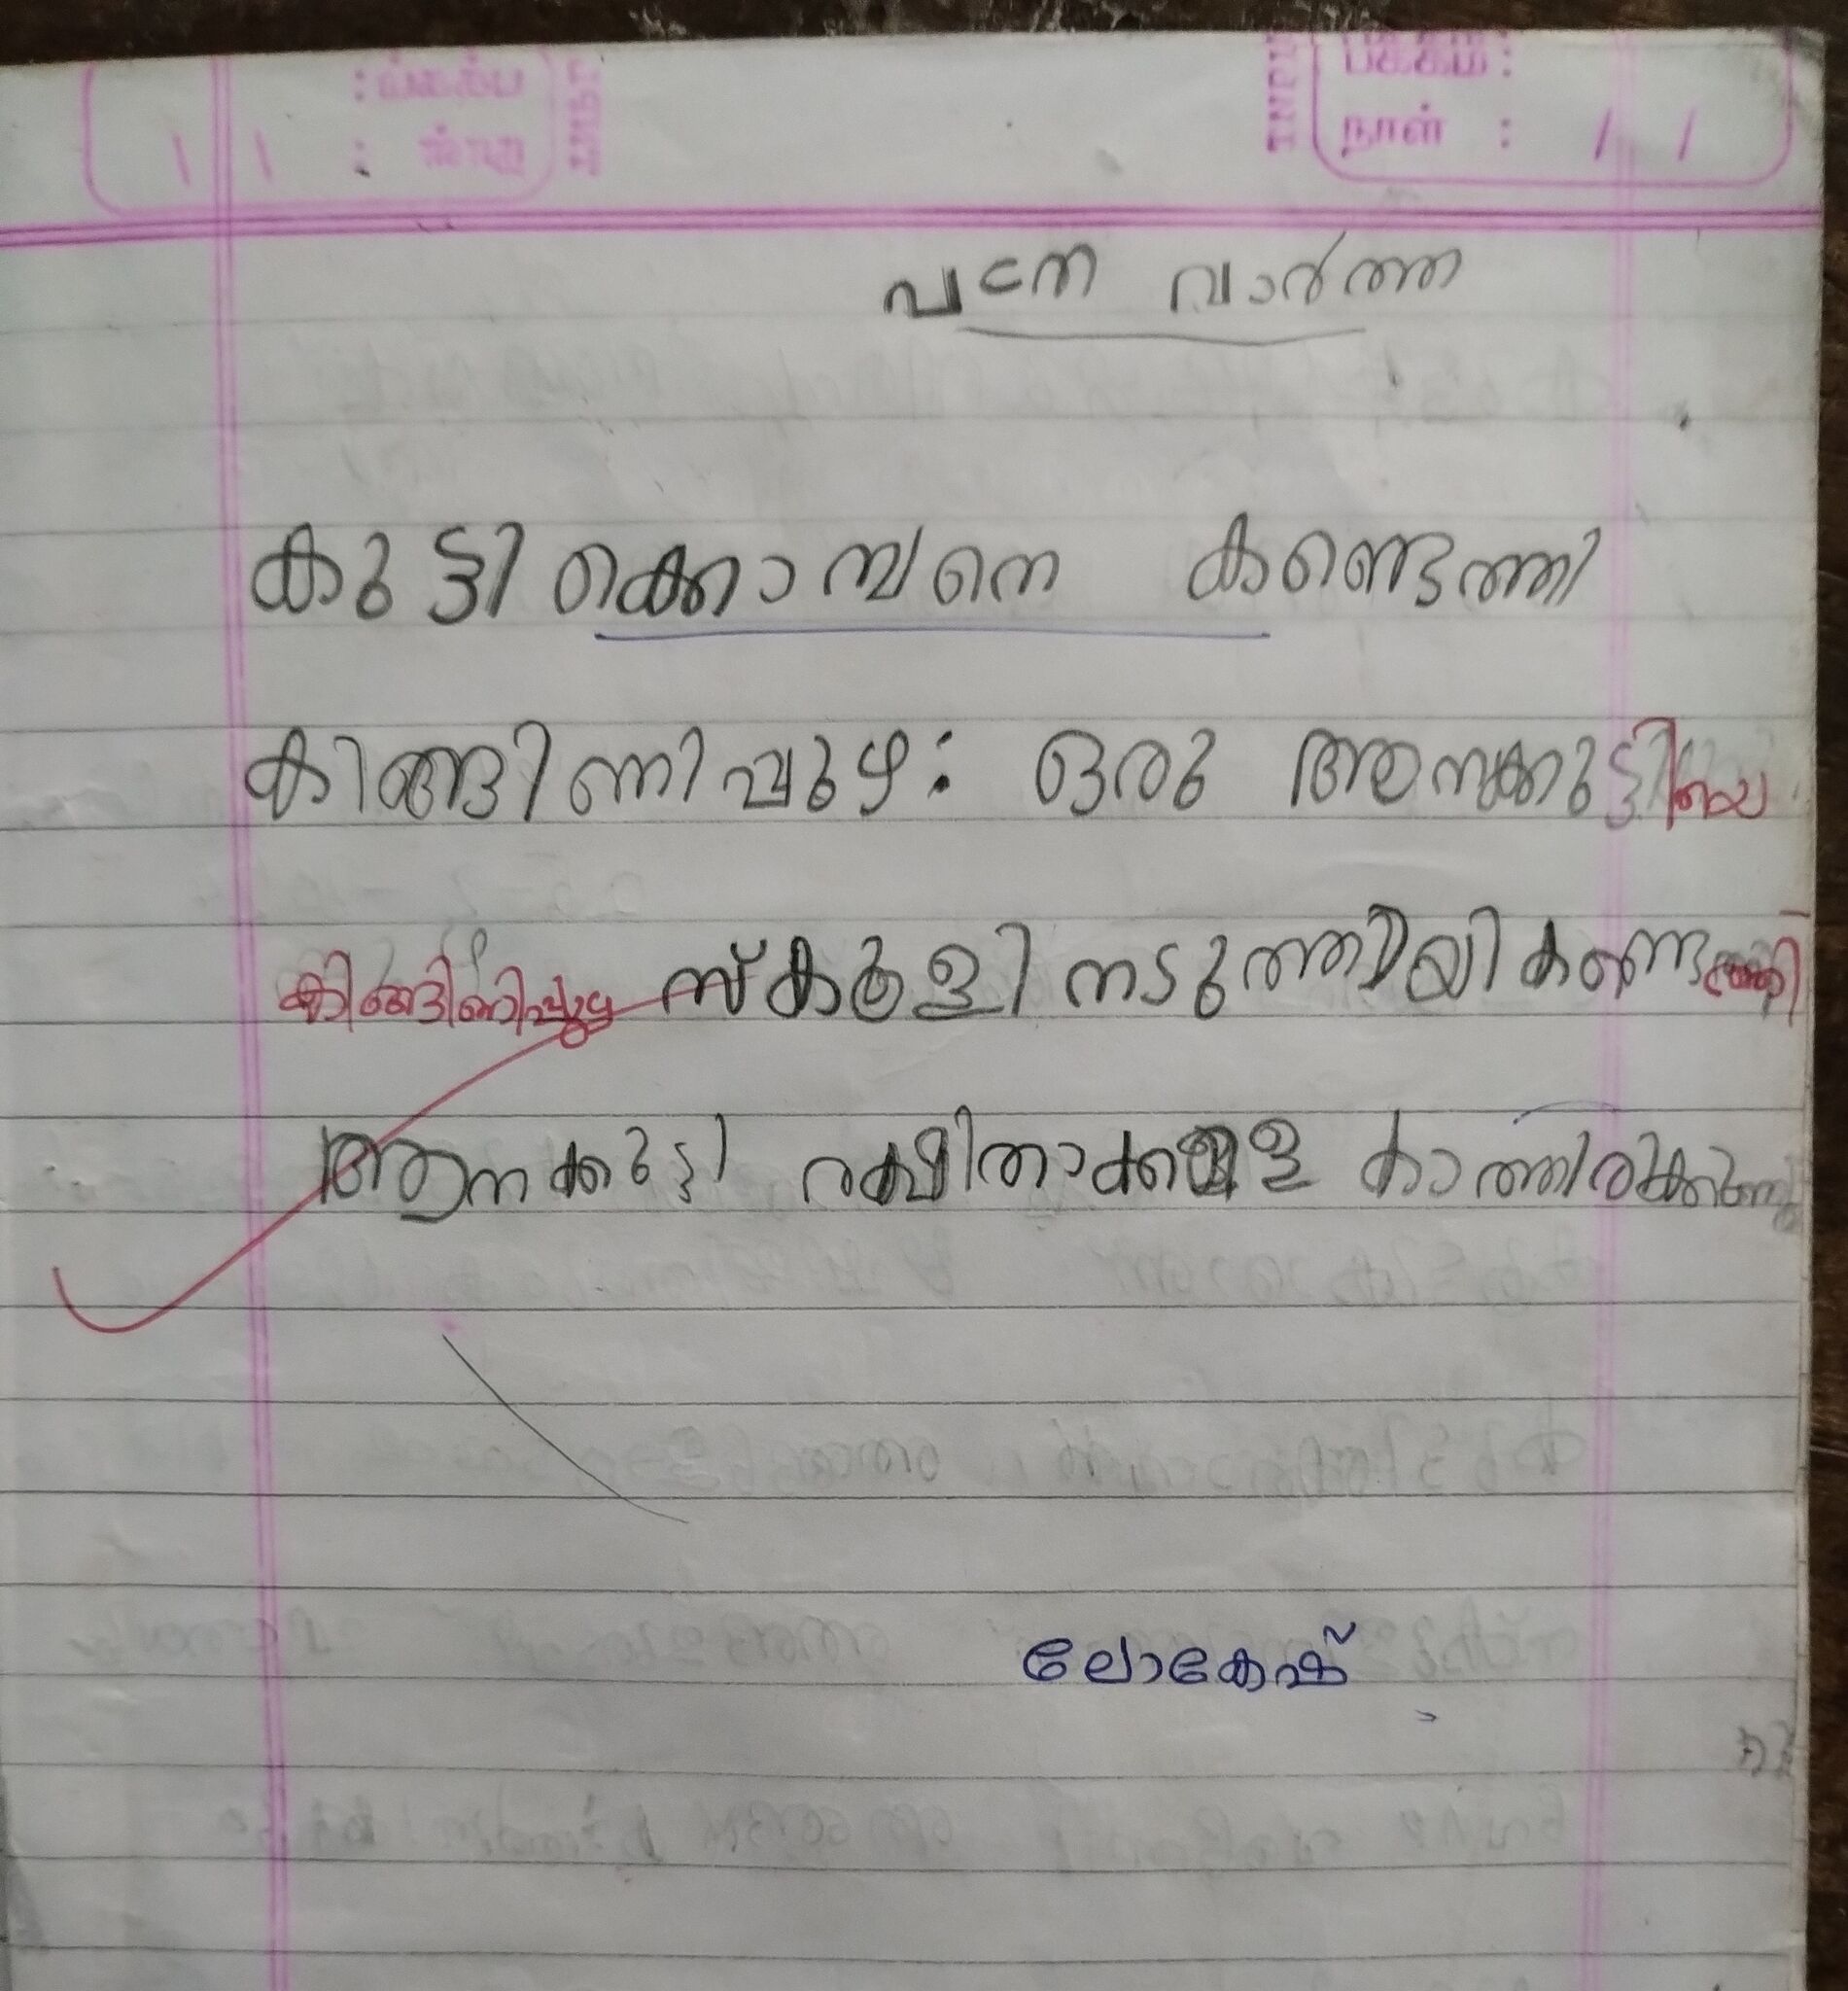 பக்கம் :
நாள் : / /
TNPL
പത്ര വാർത്ത
കുട്ടിക്കൊമ്പനെ കണ്ടെത്തി
കിങ്ങിണിപ്പുഴ: ഒരു ആനക്കുട്ടിയെ
കിങ്ങിണിപ്പുഴ സ്കൂളിനടുത്തായി കണ്ടെത്തി
ആനക്കുട്ടി രക്ഷിതാക്കളെ കാത്തിരിക്കുന്നു
ലോകേഷ്